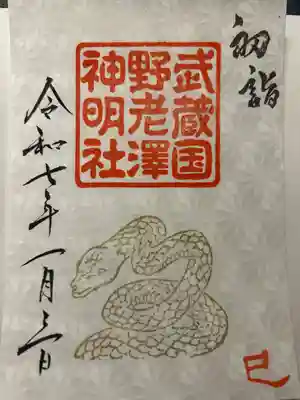 初詣
武蔵国
野老澤
神明社
令和七年一月三日
巳